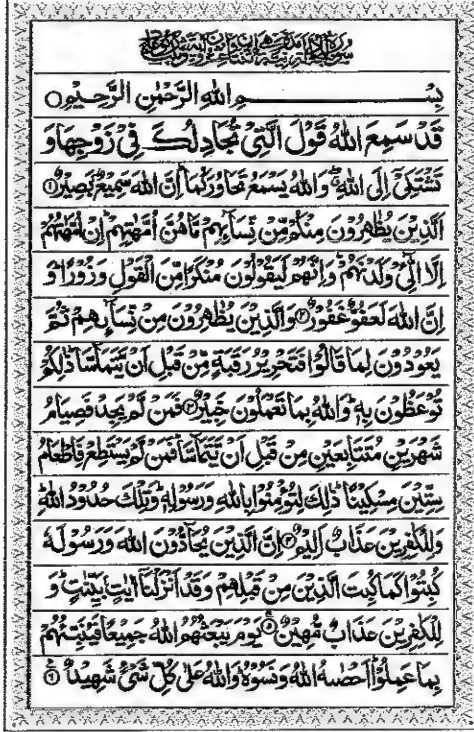 بِسْمِ اللهِ الرَّحْمٰنِ الرَّحِيْمِ
قَدْ سَمِعَ اللهُ قَوْلَ الَّتِيْ تُجَادِلُكَ فِيْ زَوْجِهَا وَ
تَشْتَكِيْٓ اِلَى اللهِ ۖ وَاللهُ يَسْمَعُ تَحَاوُرَكُمَا ؕ اِنَّ اللهَ سَمِيْعٌۢ بَصِيْرٌ ۝۱
اَلَّذِيْنَ يُظٰهِرُوْنَ مِنْكُمْ مِّنْ نِّسَآئِهِمْ مَّا هُنَّ اُمَّهٰتِهِمْ ؕ اِنْ اُمَّهٰتُهُمْ
اِلَّا الّٰٓـِٔيْ وَلَدْنَهُمْ ؕ وَاِنَّهُمْ لَيَقُوْلُوْنَ مُنْكَرًا مِّنَ الْقَوْلِ وَزُوْرًا ؕ وَ
اِنَّ اللهَ لَعَفُوٌّ غَفُوْرٌ ۝۲ وَالَّذِيْنَ يُظٰهِرُوْنَ مِنْ نِّسَآئِهِمْ ثُمَّ
يَعُوْدُوْنَ لِمَا قَالُوْا فَتَحْرِيْرُ رَقَبَةٍ مِّنْ قَبْلِ اَنْ يَّتَمَآسَّا ؕ ذٰلِكُمْ
تُوْعَظُوْنَ بِهٖ ؕ وَاللهُ بِمَا تَعْمَلُوْنَ خَبِيْرٌ ۝۳ فَمَنْ لَّمْ يَجِدْ فَصِيَامُ
شَهْرَيْنِ مُتَتَابِعَيْنِ مِنْ قَبْلِ اَنْ يَّتَمَآسَّا ۚ فَمَنْ لَّمْ يَسْتَطِعْ فَاِطْعَامُ
سِتِّيْنَ مِسْكِيْنًا ؕ ذٰلِكَ لِتُؤْمِنُوْا بِاللهِ وَرَسُوْلِهٖ ؕ وَتِلْكَ حُدُوْدُ اللهِ ؕ
وَلِلْكٰفِرِيْنَ عَذَابٌ اَلِيْمٌ ۝۴ اِنَّ الَّذِيْنَ يُحَآدُّوْنَ اللهَ وَرَسُوْلَهٗ
كُبِتُوْا كَمَا كُبِتَ الَّذِيْنَ مِنْ قَبْلِهِمْ وَقَدْ اَنْزَلْنَآ اٰيٰتٍۢ بَيِّنٰتٍ ؕ وَ
لِلْكٰفِرِيْنَ عَذَابٌ مُّهِيْنٌ ۝۵ يَوْمَ يَبْعَثُهُمُ اللهُ جَمِيْعًا فَيُنَبِّئُهُمْ
بِمَا عَمِلُوْا ؕ اَحْصٰىهُ اللهُ وَنَسُوْهُ ؕ وَاللهُ عَلٰى كُلِّ شَيْءٍ شَهِيْدٌ ۝۶